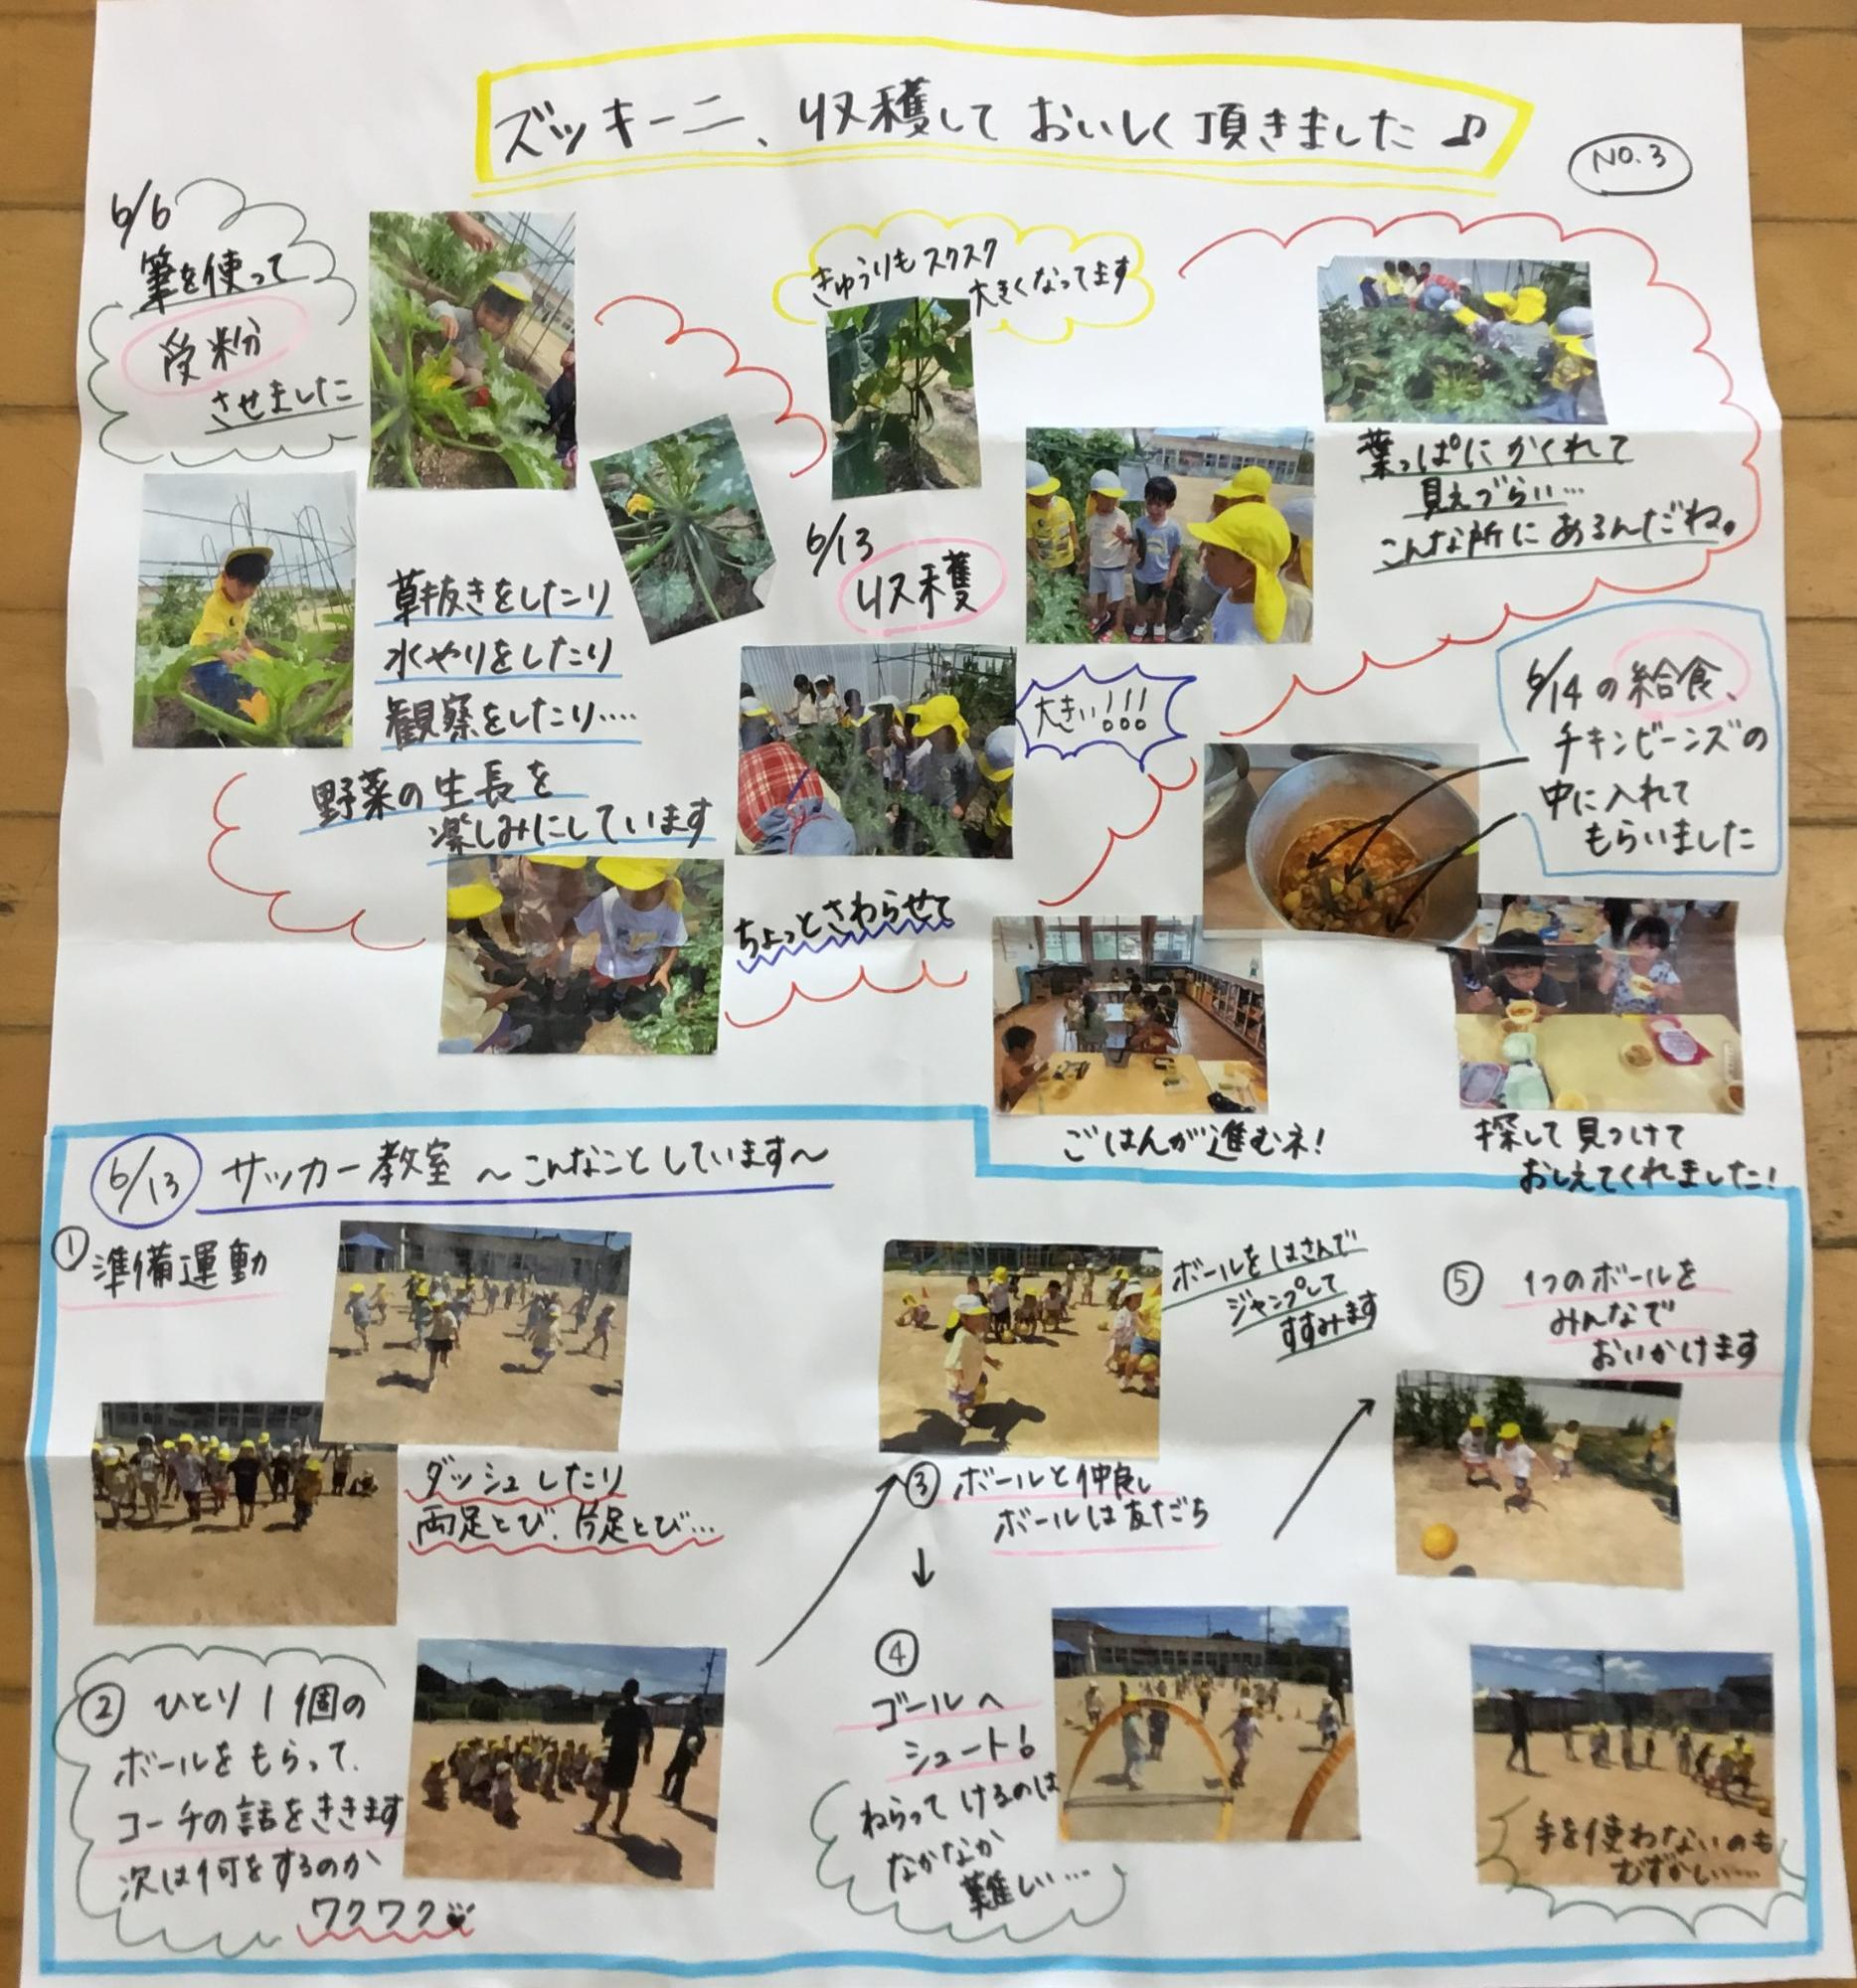 ズッキーニ、収穫して おいしく頂きました♪
NO.3
6/6
筆を使って
受粉
させました
きゅうりもスクスク
大きくなってます
草抜きをしたり
水やりをしたり
観察をしたり‥‥
野菜の生長を
楽しみにしています
6/13
収穫
葉っぱにかくれて
見えづらい…
こんな所にあるんだね。
大きい!!!
ちょっとさわらせて
6/14の給食、
チキンビーンズの
中に入れて
もらいました
ごはんが進むネ!
探して見つけて
おしえてくれました!
6/13 サッカー教室 〜こんなことしています〜
① 準備運動
ダッシュしたり
両足とび、片足とび…
② ひとり1個の
ボールをもらって、
コーチの話をききます
次は何をするのか
ワクワク
ボールをはさんで
ジャンプして
すすみます
③ ボールと仲良し
ボールは友だち
↓
④
ゴールへ
シュート!
ねらってけるのは
なかなか
難しい…‥
⑤ 1つのボールを
みんなで
おいかけます
手を使わないのも
むずかしい……